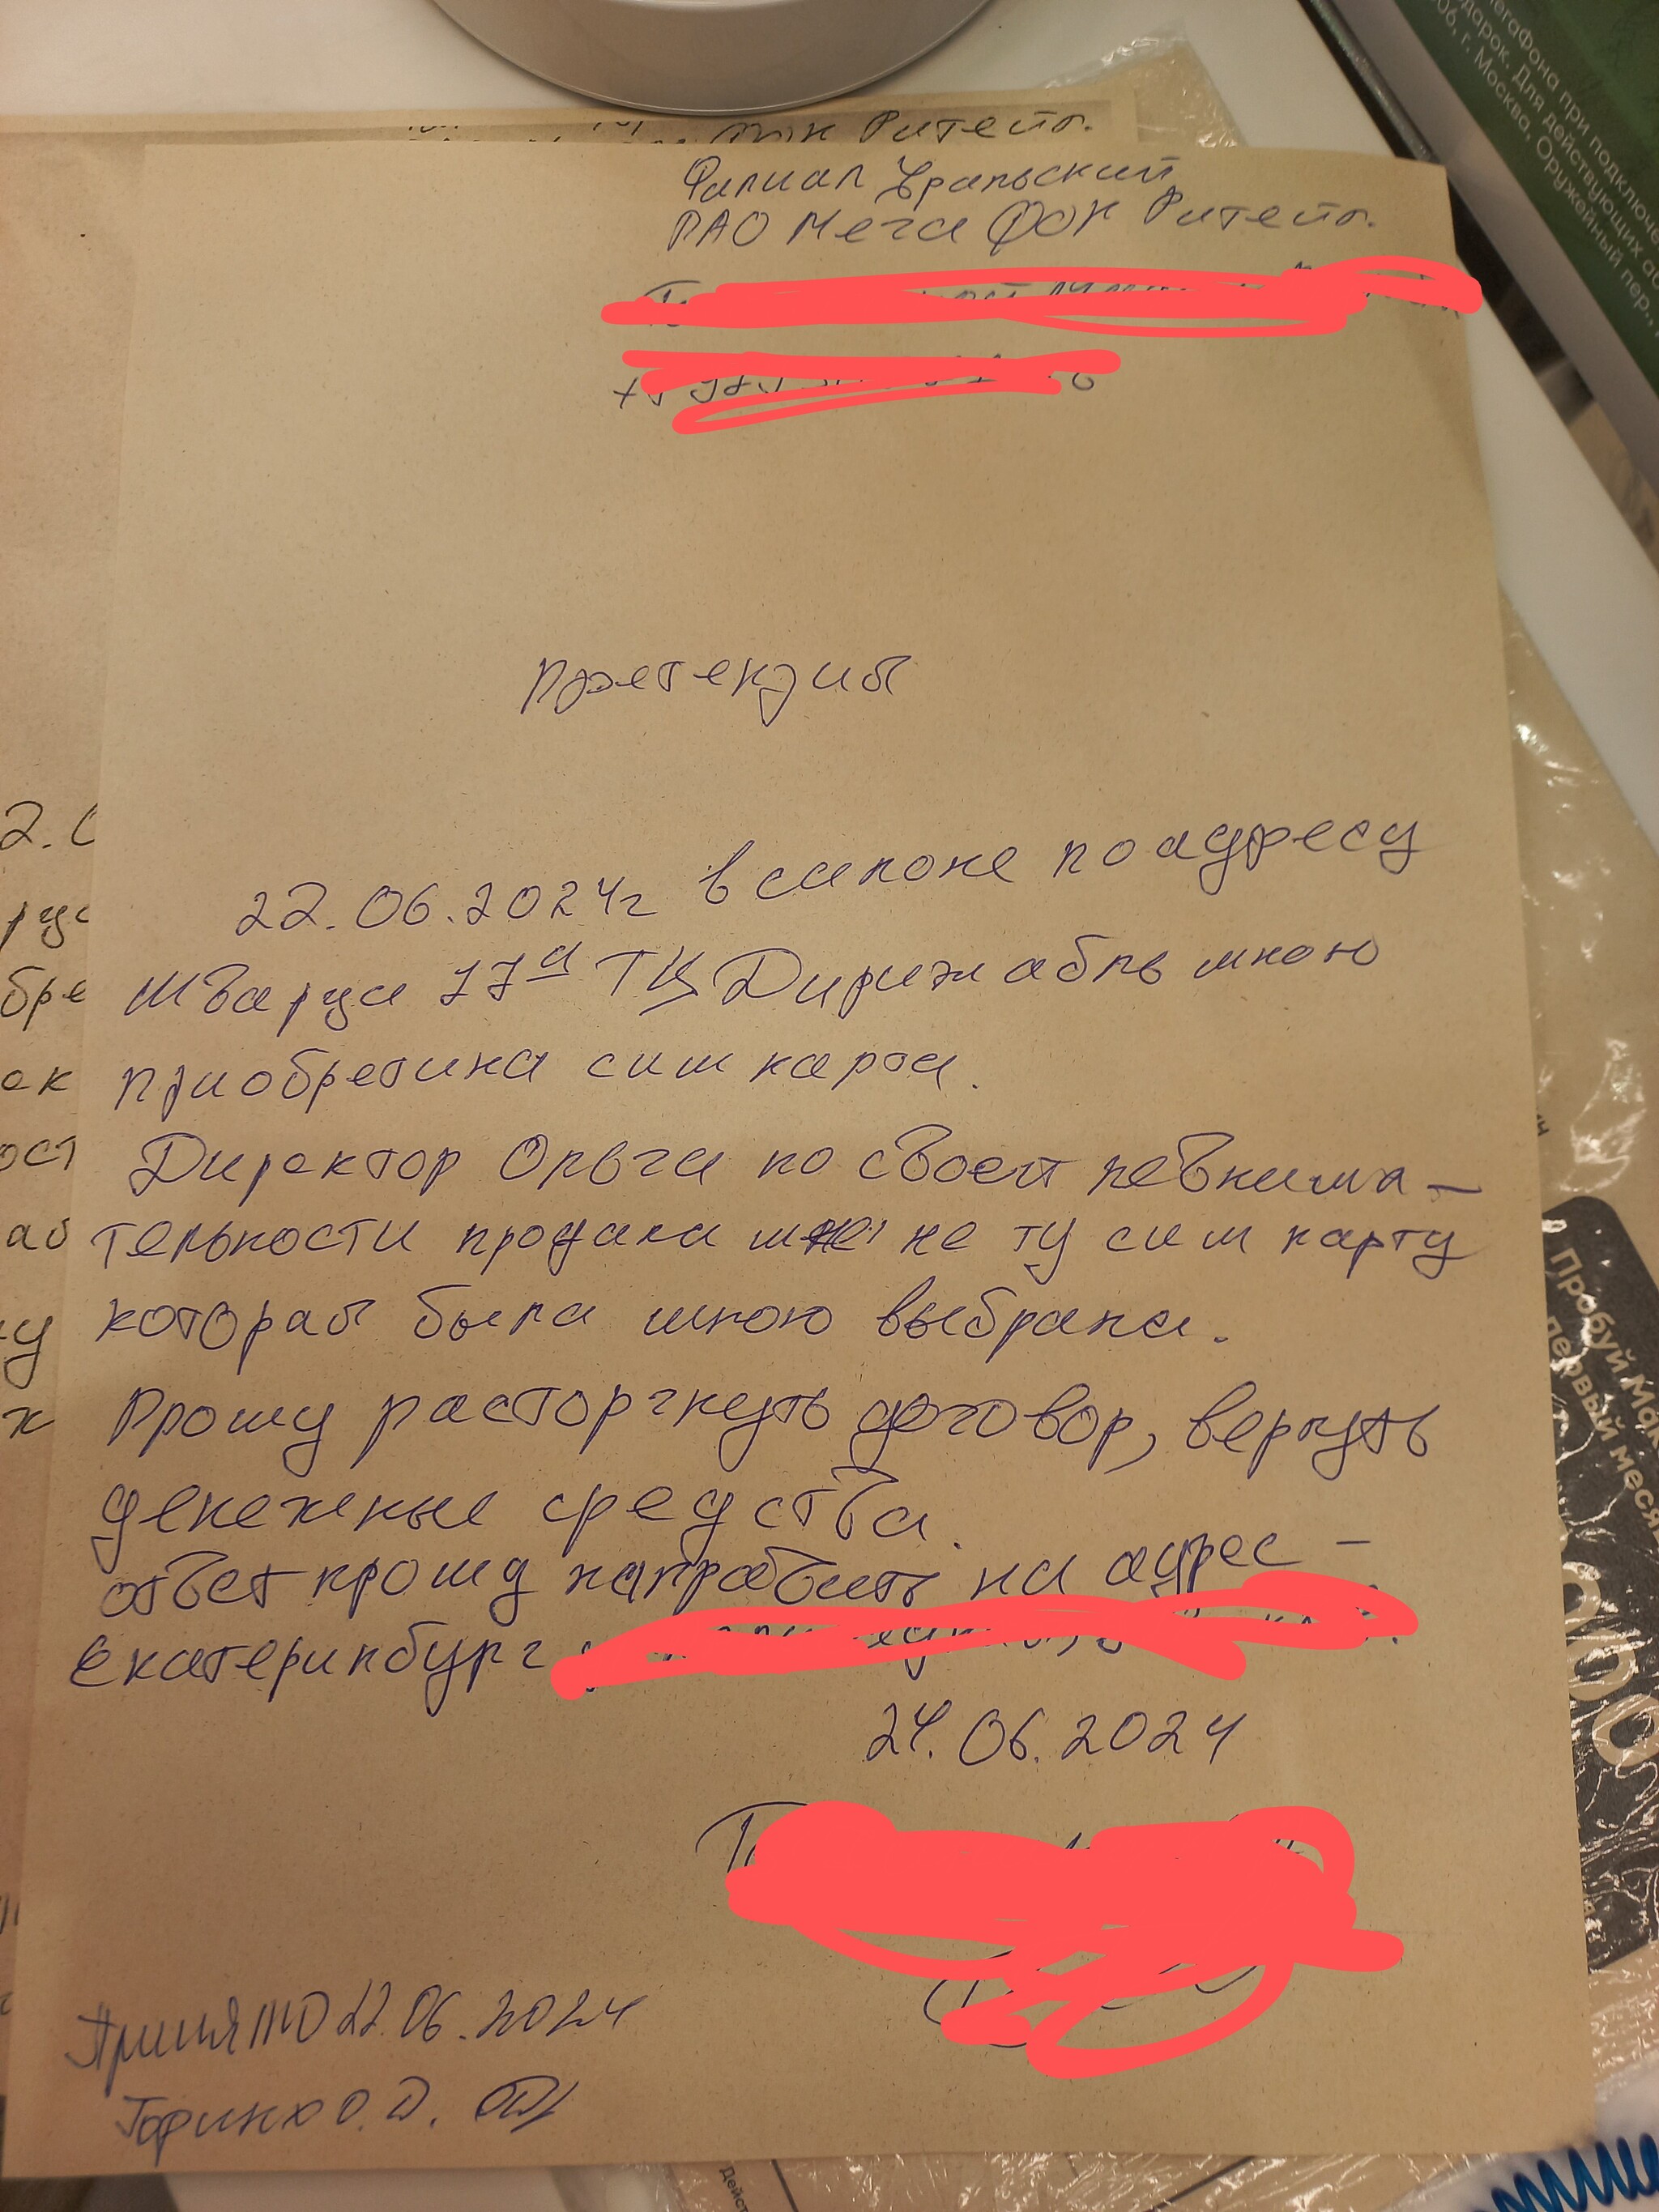 Ритейл.
Филиал Уральский
ПАО МегаФОН Ритейл.
Претензия
22.06.2024г в салоне по адресу
Шварца 17а ТЦ Дирижабль мною
приобретина сим карта.
Директор Ольга по своей невнима-
тельности продала мне не ту сим карту
которая была мною выбрана.
Прошу расторгнуть договор, вернуть
денежные средства.
ответ прошу направить на адрес -
Екатеринбург
24.06.2024
Принято 22.06.2024
О.Д.
МегаФона при подключе
подарок. Для действующих аб
06, г. Москва, Оружейный пер.,
Пробуй Мак
первый меся
Дейст